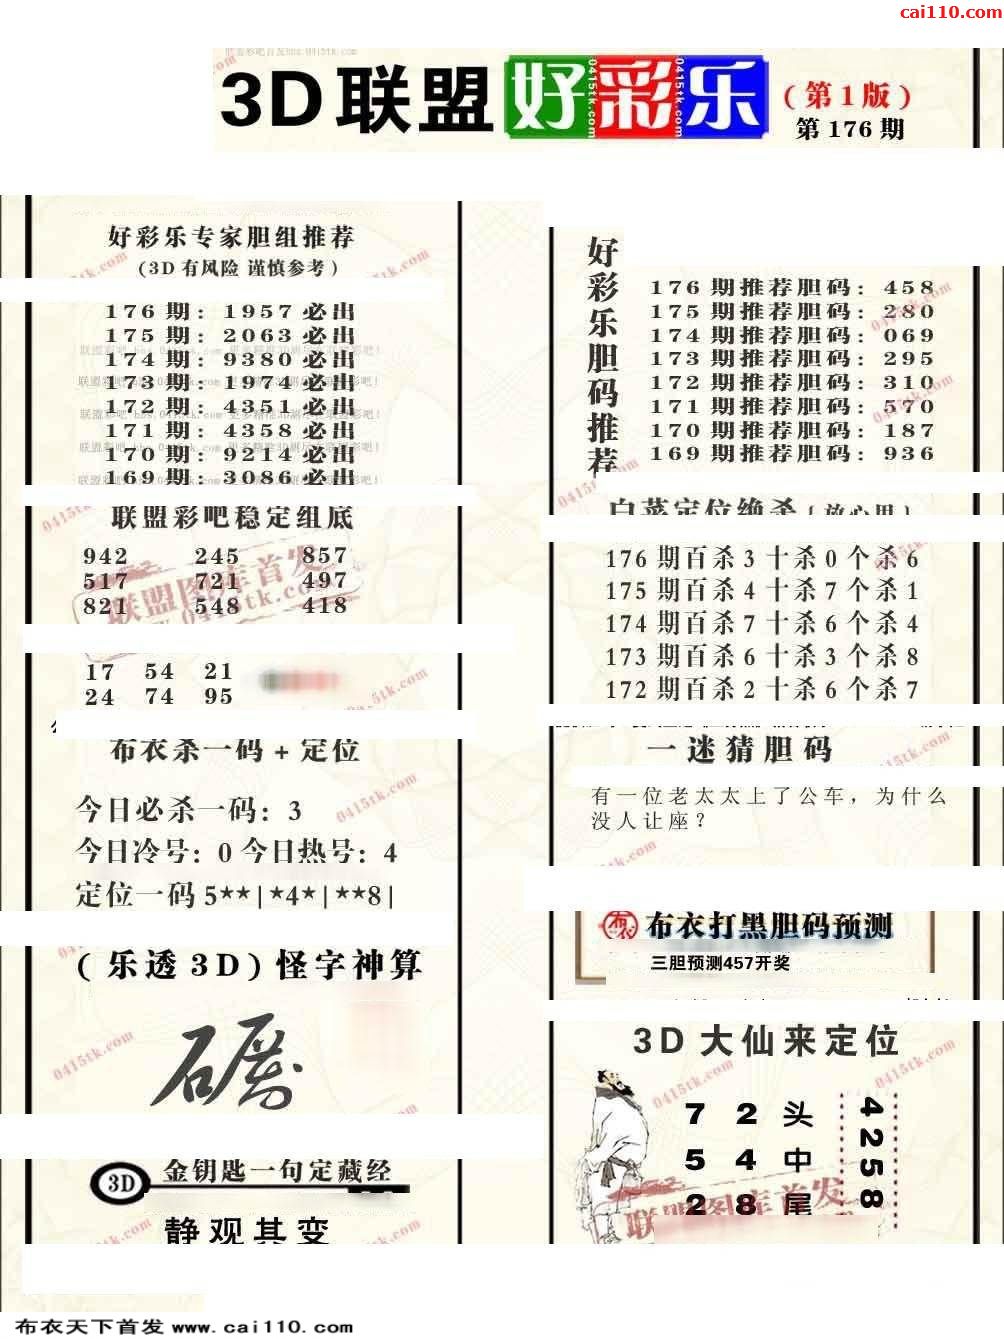 cai110.com
3D联盟好彩乐
(第1版)
第176期
好彩乐专家胆组推荐
(3D有风险 谨慎参考)
176期: 1957必出
175期: 2063必出
174期: 9380必出
173期: 1974必出
172期: 4351必出
171期: 4358必出
170期: 9214必出
169期: 3086必出
联盟彩吧稳定组底
942 245 857
517 721 497
821 548 418
17 54 21
24 74 95
布衣杀一码+定位
今日必杀一码: 3
今日冷号: 0 今日热号: 4
定位一码 5**|*4*|**8|
(乐透3D)怪字神算
3D
金钥匙一句定藏经
静观其变
好彩乐胆码推荐
176期推荐胆码: 458
175期推荐胆码: 280
174期推荐胆码: 069
173期推荐胆码: 295
172期推荐胆码: 310
171期推荐胆码: 570
170期推荐胆码: 187
169期推荐胆码: 936
白菜定位绝杀{放心用}
176期百杀3十杀0个杀6
175期百杀4十杀7个杀1
174期百杀7十杀6个杀4
173期百杀6十杀3个杀8
172期百杀2十杀6个杀7
一迷猜胆码
有一位老太太上了公车，为什么
没人让座？
布衣 布衣打黑胆码预测
三胆预测457开奖
3D大仙来定位
7 2 头
5 4 中
2 8 尾
4258
联盟图库首发
0415tk.com
布衣天下首发 www.cai110.com